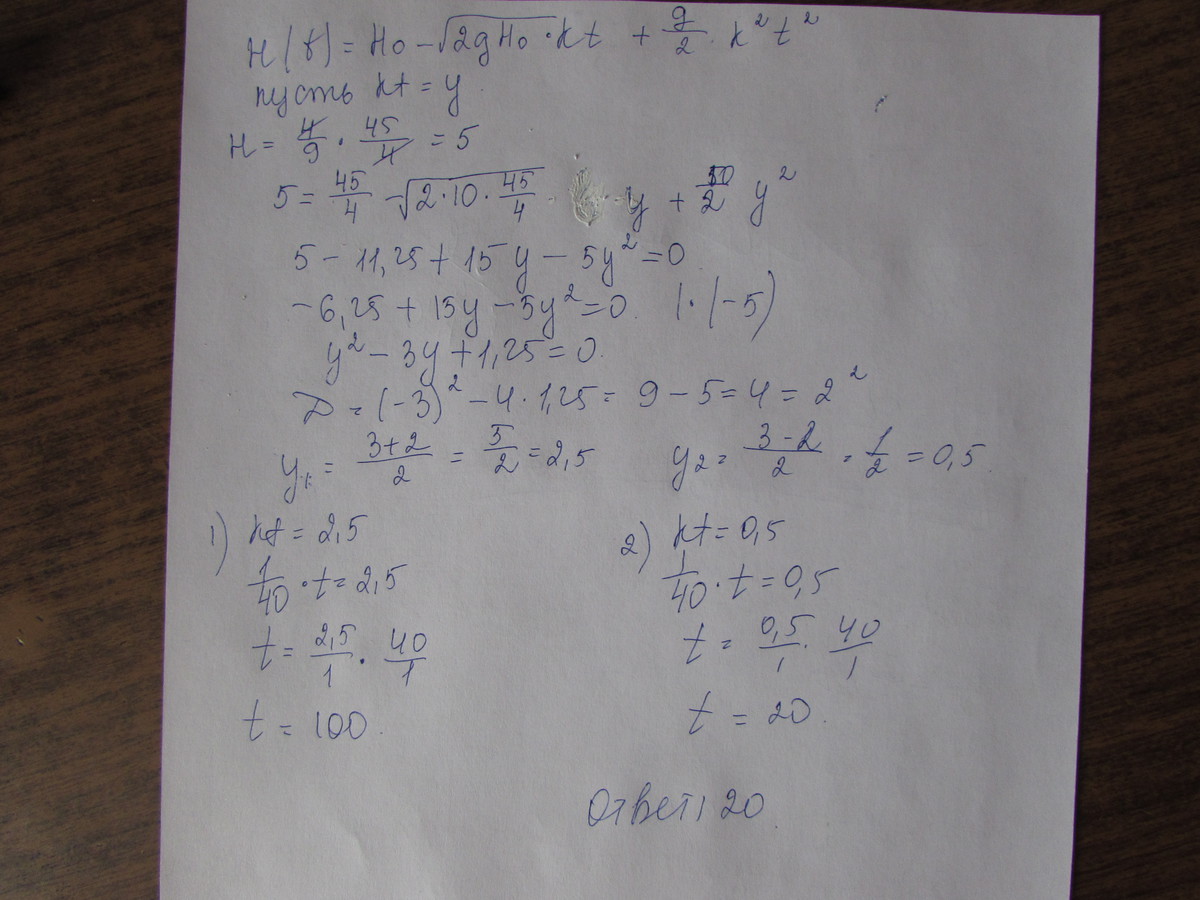 H(t) = H₀ - √2gH₀ · kt + g/2 · k²t²
пусть kt = y
H = 4/9 · 45/4 = 5
5 = 45/4 - √2·10·45/4 · y + 10/2 y²
5 - 11,25 + 15y - 5y² = 0
-6,25 + 15y - 5y² = 0. | · (-5)
y² - 3y + 1,25 = 0.
D = (-3)² - 4 · 1,25 = 9 - 5 = 4 = 2²
y₁ = 3+2/2 = 5/2 = 2,5 y₂ = 3-2/2 = 1/2 = 0,5
1) kt = 2,5 2) kt = 0,5
1/40 · t = 2,5 1/40 · t = 0,5
t = 2,5/1 · 40/1 t = 0,5/1 · 40/1
t = 100. t = 20.
Ответ: 20